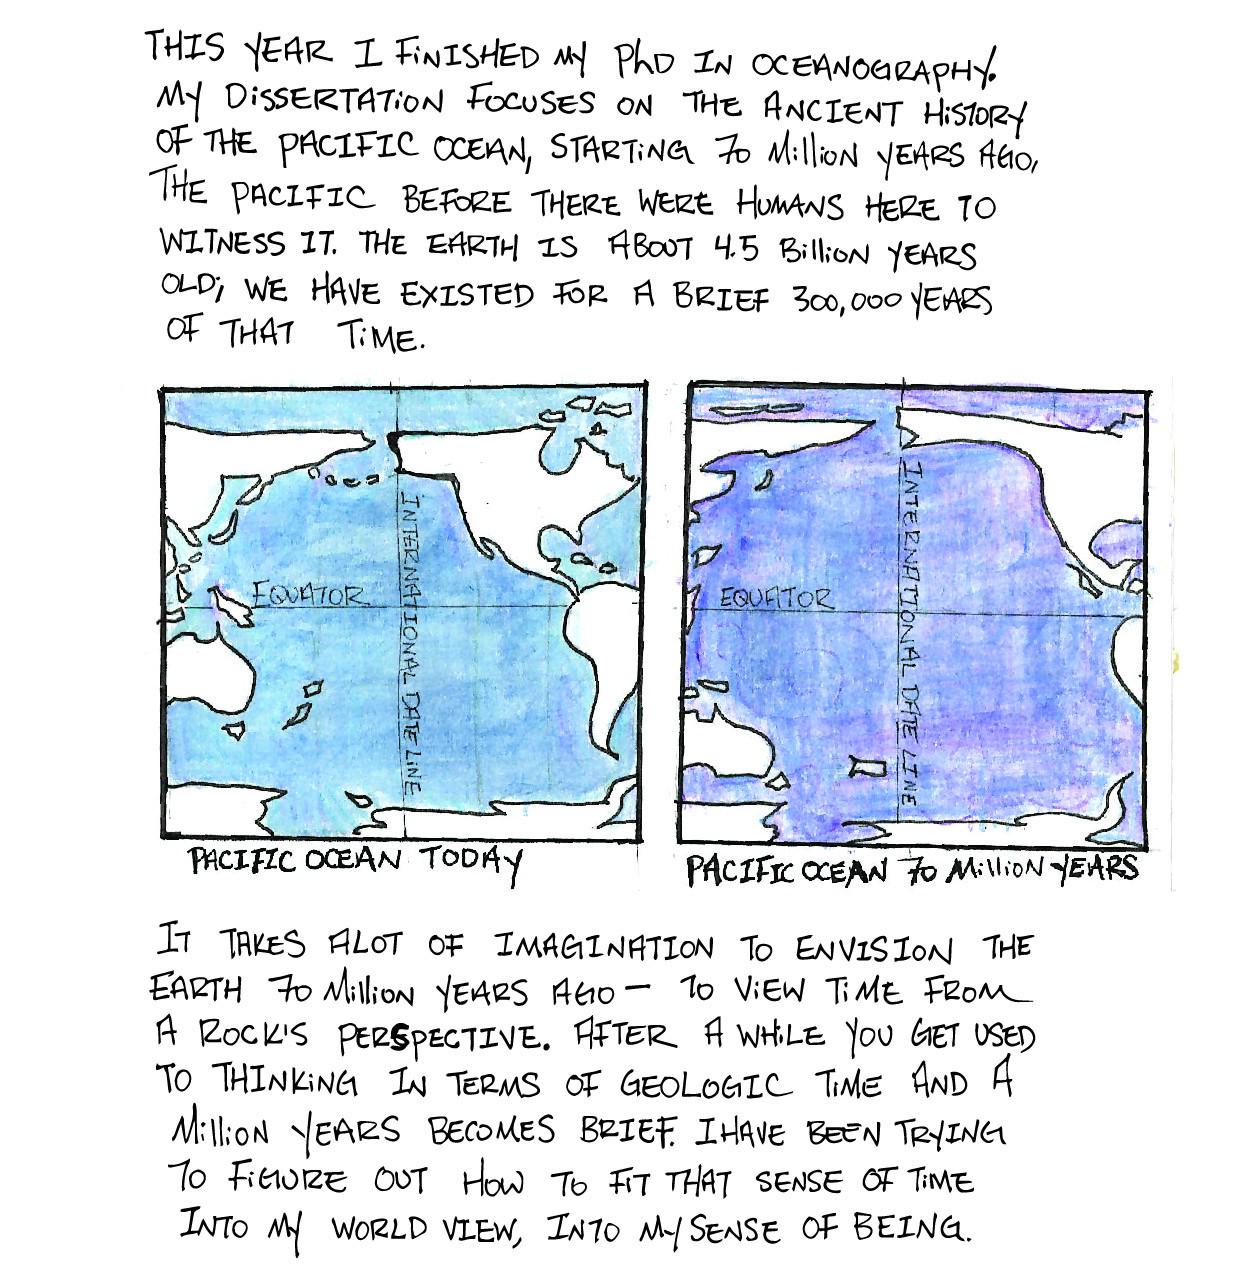 THIS YEAR I FINISHED MY PhD IN OCEANOGRAPHY.
MY DISSERTATION FOCUSES ON THE ANCIENT HISTORY
OF THE PACIFIC OCEAN, STARTING 70 MILLION YEARS AGO,
THE PACIFIC BEFORE THERE WERE HUMANS HERE TO
WITNESS IT. THE EARTH IS ABOUT 4.5 BILLION YEARS
OLD; WE HAVE EXISTED FOR A BRIEF 300,000 YEARS
OF THAT TIME.
EQUATOR
INTERNATIONAL DATE LINE
PACIFIC OCEAN TODAY
EQUATOR
INTERNATIONAL DATE LINE
PACIFIC OCEAN 70 MILLION YEARS
IT TAKES ALOT OF IMAGINATION TO ENVISION THE
EARTH 70 MILLION YEARS AGO — TO VIEW TIME FROM
A ROCK'S PERSPECTIVE. AFTER A WHILE YOU GET USED
TO THINKING IN TERMS OF GEOLOGIC TIME AND A
MILLION YEARS BECOMES BRIEF. I HAVE BEEN TRYING
TO FIGURE OUT HOW TO FIT THAT SENSE OF TIME
INTO MY WORLD VIEW, INTO MY SENSE OF BEING.